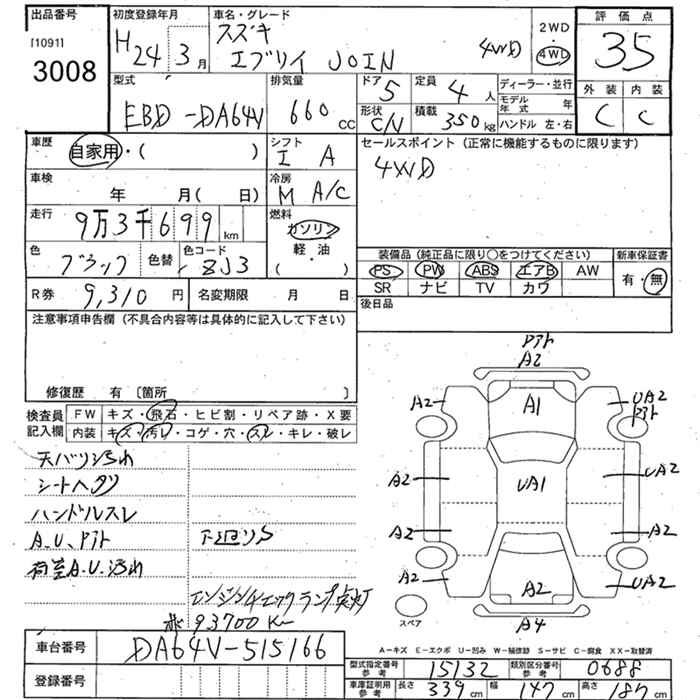 出品番号 初度登録年月 車名・グレード 評価点
[1091] H24年3月 スズキ 2WD 35
3008 エブリイ JOIN 4WD ・ 4WD
型式 排気量 ドア 5 定員 4人 ディーラー・並行 外装 内装
EBD-DA64V 660cc 形状 CN 積載 350kg モデル年式 年 C C
ハンドル 左・右
車歴 自家用・( ) シフト I A セールスポイント (正常に機能するものに限ります)
車検 年 月( 日) 冷房 M A/C 4WD
走行 9万3千699km 燃料 ガソリン・軽油 ( )
色 ブラック 色替 色コード ZJ3
装備品 (純正品に限り〇をつけてください) 新車保証書
PS PW ABS エアB AW 有・無
SR ナビ TV カワ
R券 9,310円 名変期限 月 日 後日品
注意事項申告欄 (不具合内容等は具体的に記入して下さい)
修復歴 有 〔箇所 〕
検査員記入欄 FW キズ・飛石・ヒビ割・リペア跡・X要
内装 キズ・汚レ・コゲ・穴・スレ・キレ・破レ
天バリ汚れ
シートヘタリ
ハンドルスレ
A.U、アト 下廻りS
荷室A.U.汚れ
エンジンチェックランプ点灯
93700K
アト
A2
A2 A1 UA2
アト
A2 UA1 UA2
A2 A2
A2 A2 UA2
スペア A4
A-キズ E-エクボ U-凹み W-補修跡 S-サビ C-腐食 XX-取替済
車台番号 DA64V-515166
登録番号
型式指定番号 参考 15132 類別区分番号 参考 0688
車庫証明用 参考 長さ 339cm 幅 147cm 高さ 187cm